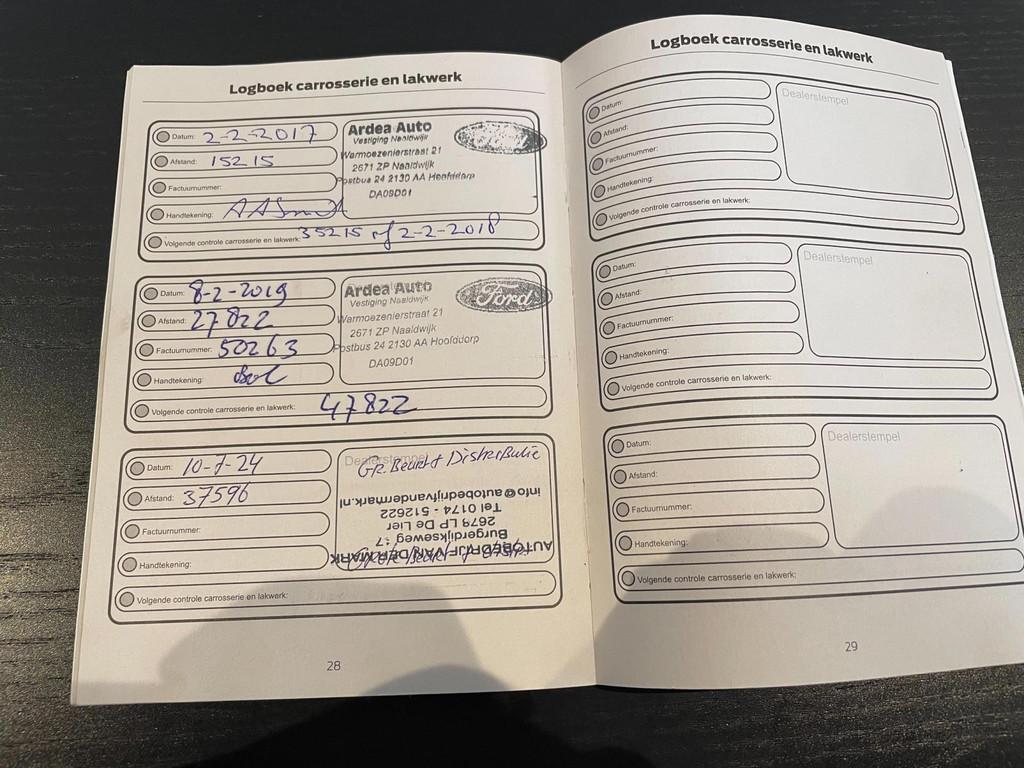 Logboek carrosserie en lakwerk
Datum: 2-2-2017
Afstand: 15215
Factuurnummer:
Handtekening: AASmit
Volgende controle carrosserie en lakwerk: 35215 of 2-2-2018
Ardea Auto
Vestiging Naaldwijk
Warmoezenierstraat 21
2671 ZP Naaldwijk
Postbus 24 2130 AA Hoofddorp
DA09D01
Datum: 8-2-2019
Afstand: 27822
Factuurnummer: 50263
Handtekening:
Volgende controle carrosserie en lakwerk: 47822
Ardea Auto
Vestiging Naaldwijk
Ford
Warmoezenierstraat 21
2671 ZP Naaldwijk
Postbus 24 2130 AA Hoofddorp
DA09D01
Datum: 10-7-24
Afstand: 37596
Factuurnummer:
Handtekening:
Volgende controle carrosserie en lakwerk:
Dealerstempel
Gr. Beurt + Distributie
AUTOBEDRIJF VAN DER MARK
Burgerdijkseweg
2678 LP De Lier
Tel 0174 - 512622
info@autobedrijfvandermark.nl
28
Logboek carrosserie en lakwerk
Datum:
Afstand:
Factuurnummer:
Handtekening:
Volgende controle carrosserie en lakwerk:
Dealerstempel
Datum:
Afstand:
Factuurnummer:
Handtekening:
Volgende controle carrosserie en lakwerk:
Dealerstempel
Datum:
Afstand:
Factuurnummer:
Handtekening:
Volgende controle carrosserie en lakwerk:
Dealerstempel
29